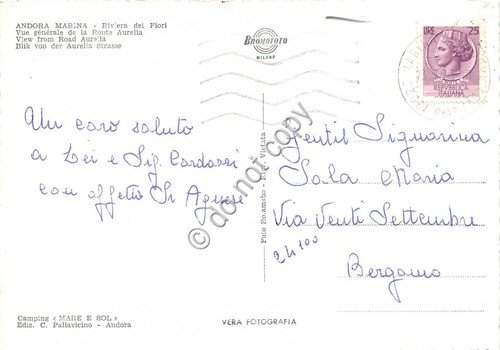 ANDORA MARINA - Riviera dei Fiori
Vue générale de la Route Aurelia
View from Road Aurelia
Blik von der Aurelia Strasse
BROMOFOTO
MILANO
LIRE 25
REPVBBLICA
ITALIANA
Un caro saluto
a Lei e Sig.
con affetto
Gentil Signorina
Sala Maria
Via Venti Settembre
24100
Bergamo
© do not copy
Vietata
Camping « MARE E SOL »
Ediz. C. Pallavicino - Andora
VERA FOTOGRAFIA